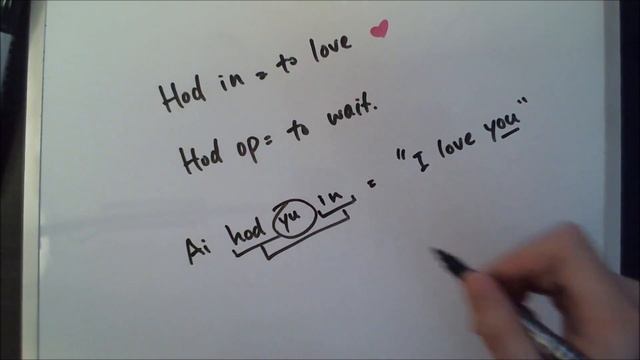 Hod in = to love ❤
Hod op = to wait.
Ai hod yu in = "I love you"